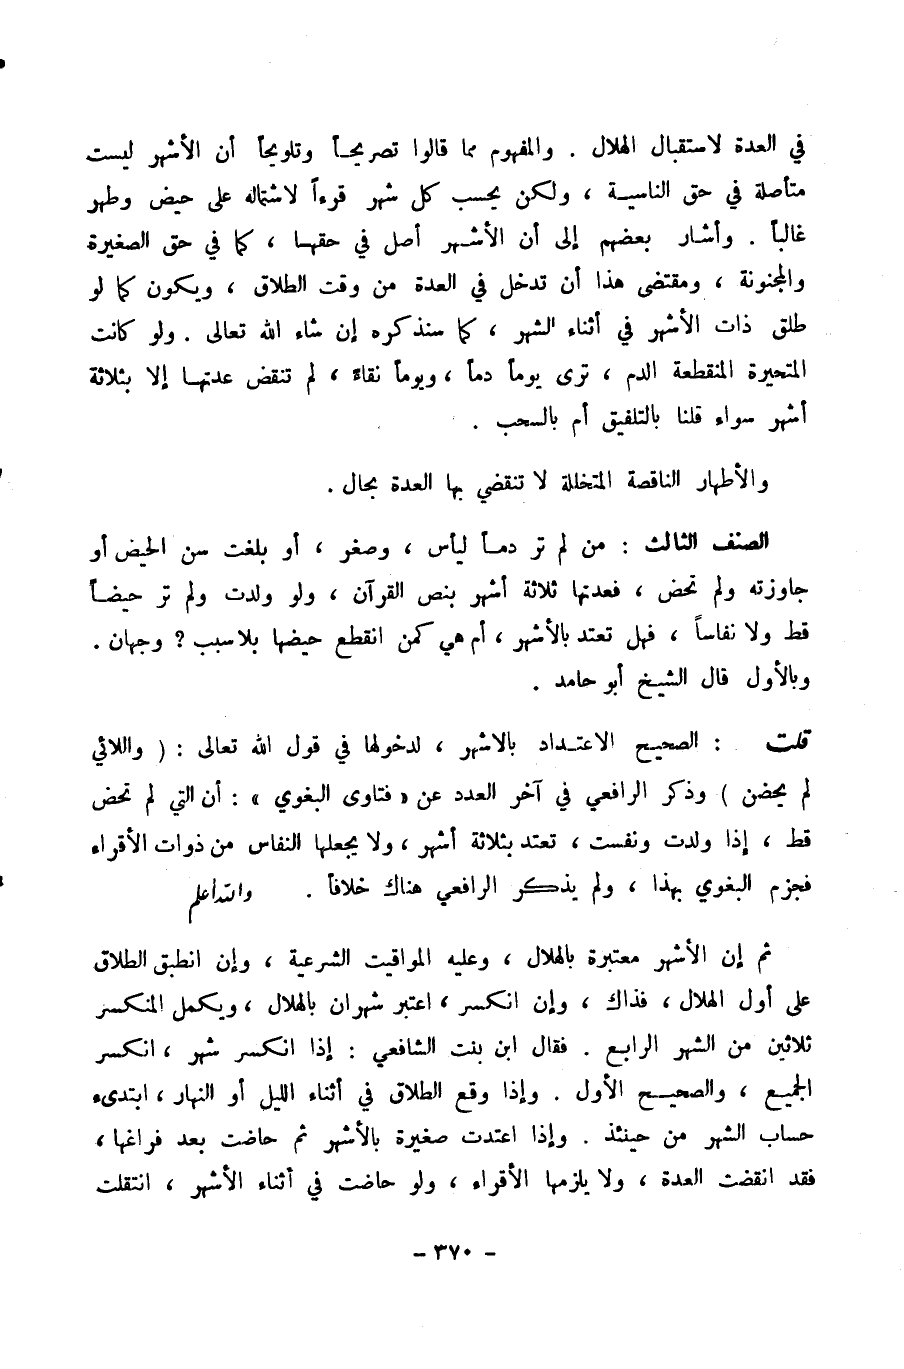 في العدة لاستقبال الهلال . والمفهوم مما قالوا تصريحاً وتلويحاً أن الأشهر ليست
متأصلة في حق الناسية ، ولكن يحسب كل شهر قرءاً لاشتماله على حيض وطهر
غالباً . وأشار بعضهم إلى أن الأشهر أصل في حقها ، كما في حق الصغيرة
والمجنونة ، ومقتضى هذا أن تدخل في العدة من وقت الطلاق ، ويكون كما لو
طلق ذات الأشهر في أثناء الشهر ، كما سنذكره إن شاء الله تعالى . ولو كانت
المتحيرة المنقطعة الدم ، ترى يوماً دماً ، ويوماً نقاءً ، لم تنقض عدتها إلا بثلاثة
أشهر سواء قلنا بالتلفيق أم بالسحب .
والأطهار الناقصة المتخللة لا تنقضي بها العدة بحال .
الصنف الثالث : من لم تر دماً ليأس ، وصغر ، أو بلغت سن الحيض أو
جاوزته ولم تحض ، فعدتها ثلاثة أشهر بنص القرآن ، ولو ولدت ولم تر حيضاً
قط ولا نفاساً ، فهل تعتد بالأشهر ، أم هي كمن انقطع حيضها بلا سبب ? وجهان .
وبالأول قال الشيخ أبو حامد .
قلت : الصحيح الاعتداد بالاشهر ، لدخولها في قول الله تعالى : ( واللائي
لم يحضن ) وذكر الرافعي في آخر العدد عن « فتاوى البغوي » : أن التي لم تحض
قط ، إذا ولدت ونفست ، تعتد بثلاثة أشهر ، ولا يجعلها النفاس من ذوات الأقراء
فجزم البغوي بهذا ، ولم يذكر الرافعي هناك خلافاً . والله أعلم
ثم إن الأشهر معتبرة بالهلال ، وعليه المواقيت الشرعية ، وإن انطبق الطلاق
على أول الهلال ، فذاك ، وإن انكسر ، اعتبر شهران بالهلال ، ويكمل المنكسر
ثلاثين من الشهر الرابع . فقال ابن بنت الشافعي : إذا انكسر شهر ، انكسر
الجميع ، والصحيح الأول . وإذا وقع الطلاق في أثناء الليل أو النهار ، ابتدىء
حساب الشهر من حينئذ . وإذا اعتدت صغيرة بالأشهر ثم حاضت بعد فراغها ،
فقد انقضت العدة ، ولا يلزمها الأقراء ، ولو حاضت في أثناء الأشهر ، انتقلت
- ٣٧٠ -